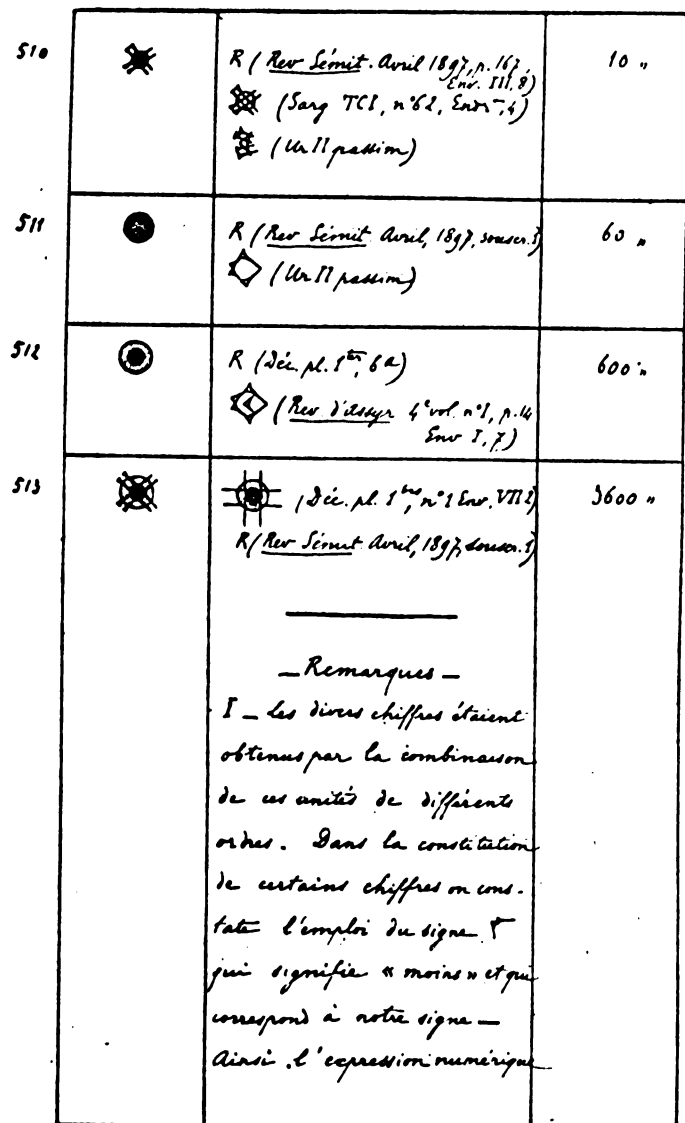 510 R (Rev Sémit. Avril 1897, p. 167, 10 "
Env. III, 8)
(Sarg TCI, n° 62, Env 5, 4)
(Ur II passim)
511 R (Rev Sémit. Avril, 1897, souscr. 1) 60 "
(Ur II passim)
512 R (Déc. pl. 1ter, 6a) 600 "
(Rev. d'Assyr 4e vol. n° I, p. 14
Env I, 7)
513 (Déc. pl. 1bis, n° 1 Env. VII 2) 3600 "
R (Rev Sémit Avril, 1897, souscr. 1)
— Remarques —
I — Les divers chiffres étaient
obtenus par la combinaison
de ces unités de différents
ordres. Dans la constitution
de certains chiffres on cons-
tate l'emploi du signe
qui signifie « moins » et qui
correspond à notre signe —
Ainsi, l'expression numérique